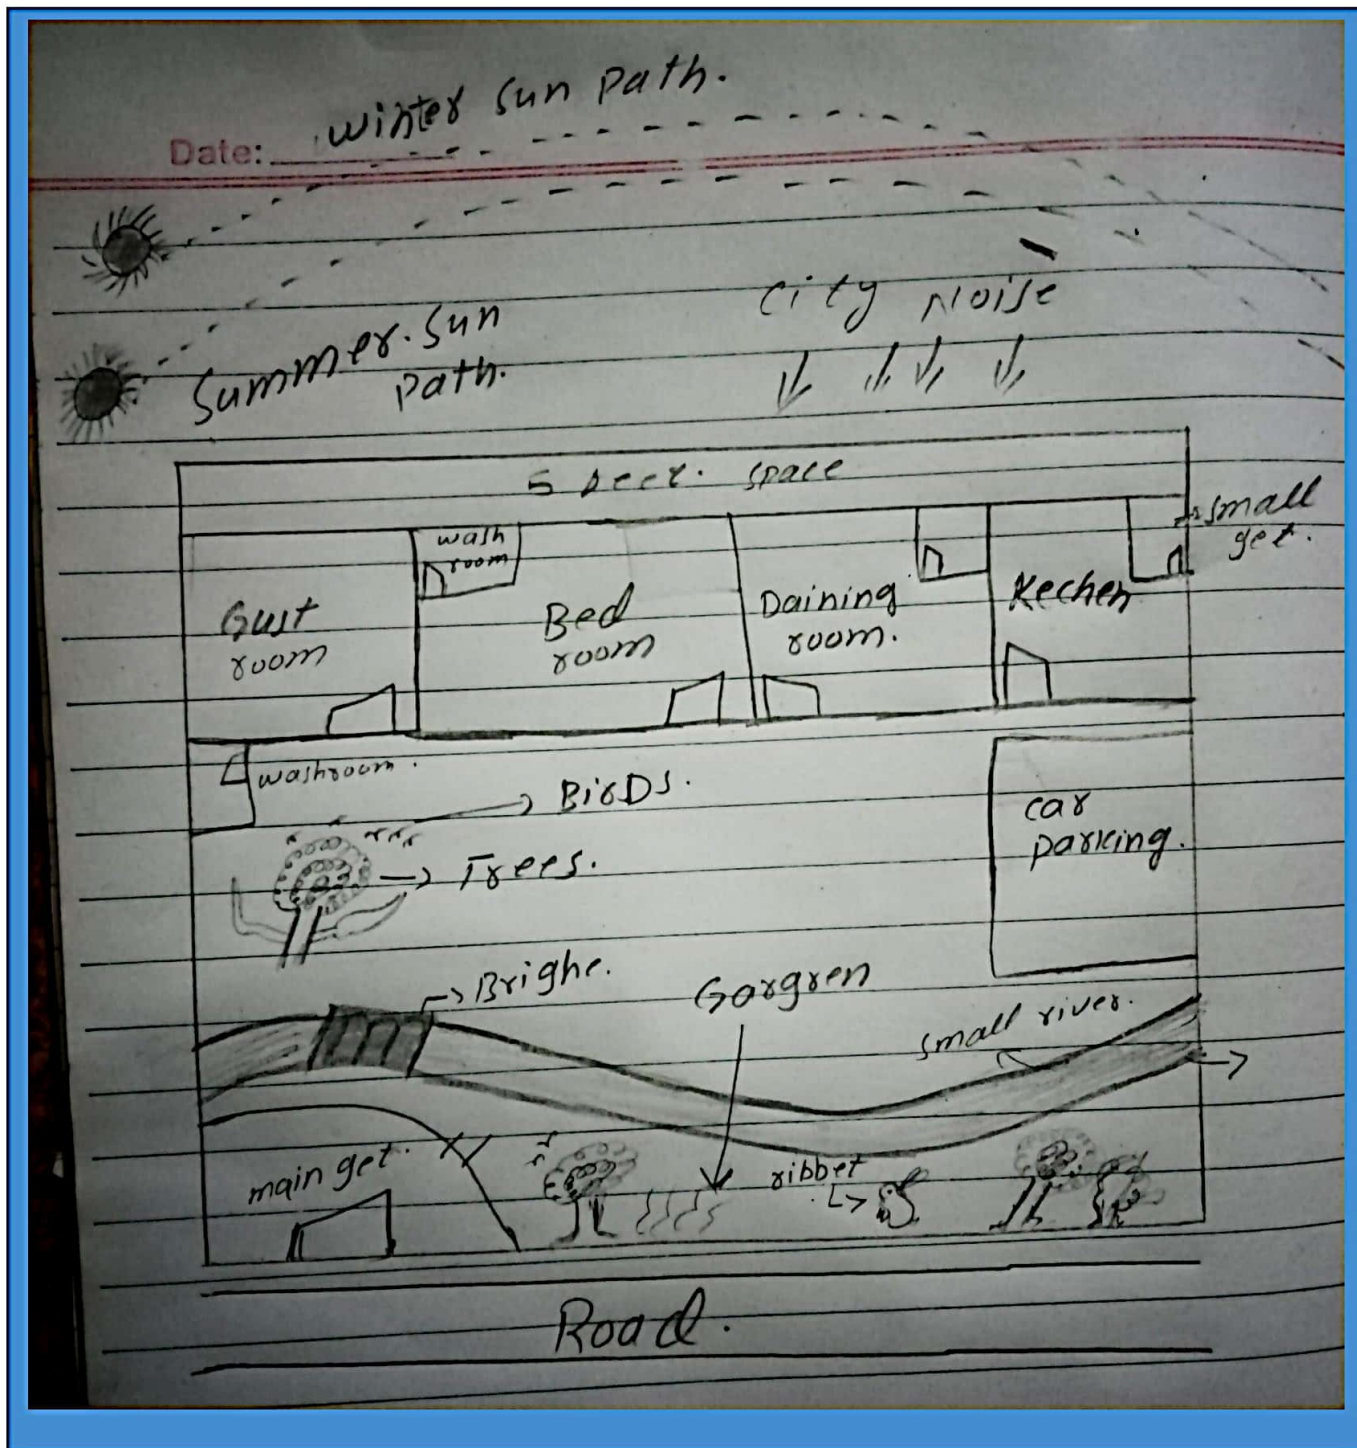 Winter Sun Path.
Date:
Summer. Sun
Path.
City Noise
5 space
small
get.
wash
room
Gust
room
Bed
room
Daining
room.
Kechen
washroom.
BirDs.
Trees.
car
parking.
Brighe.
Gorgren
small river.
main get.
ribbet
Road.